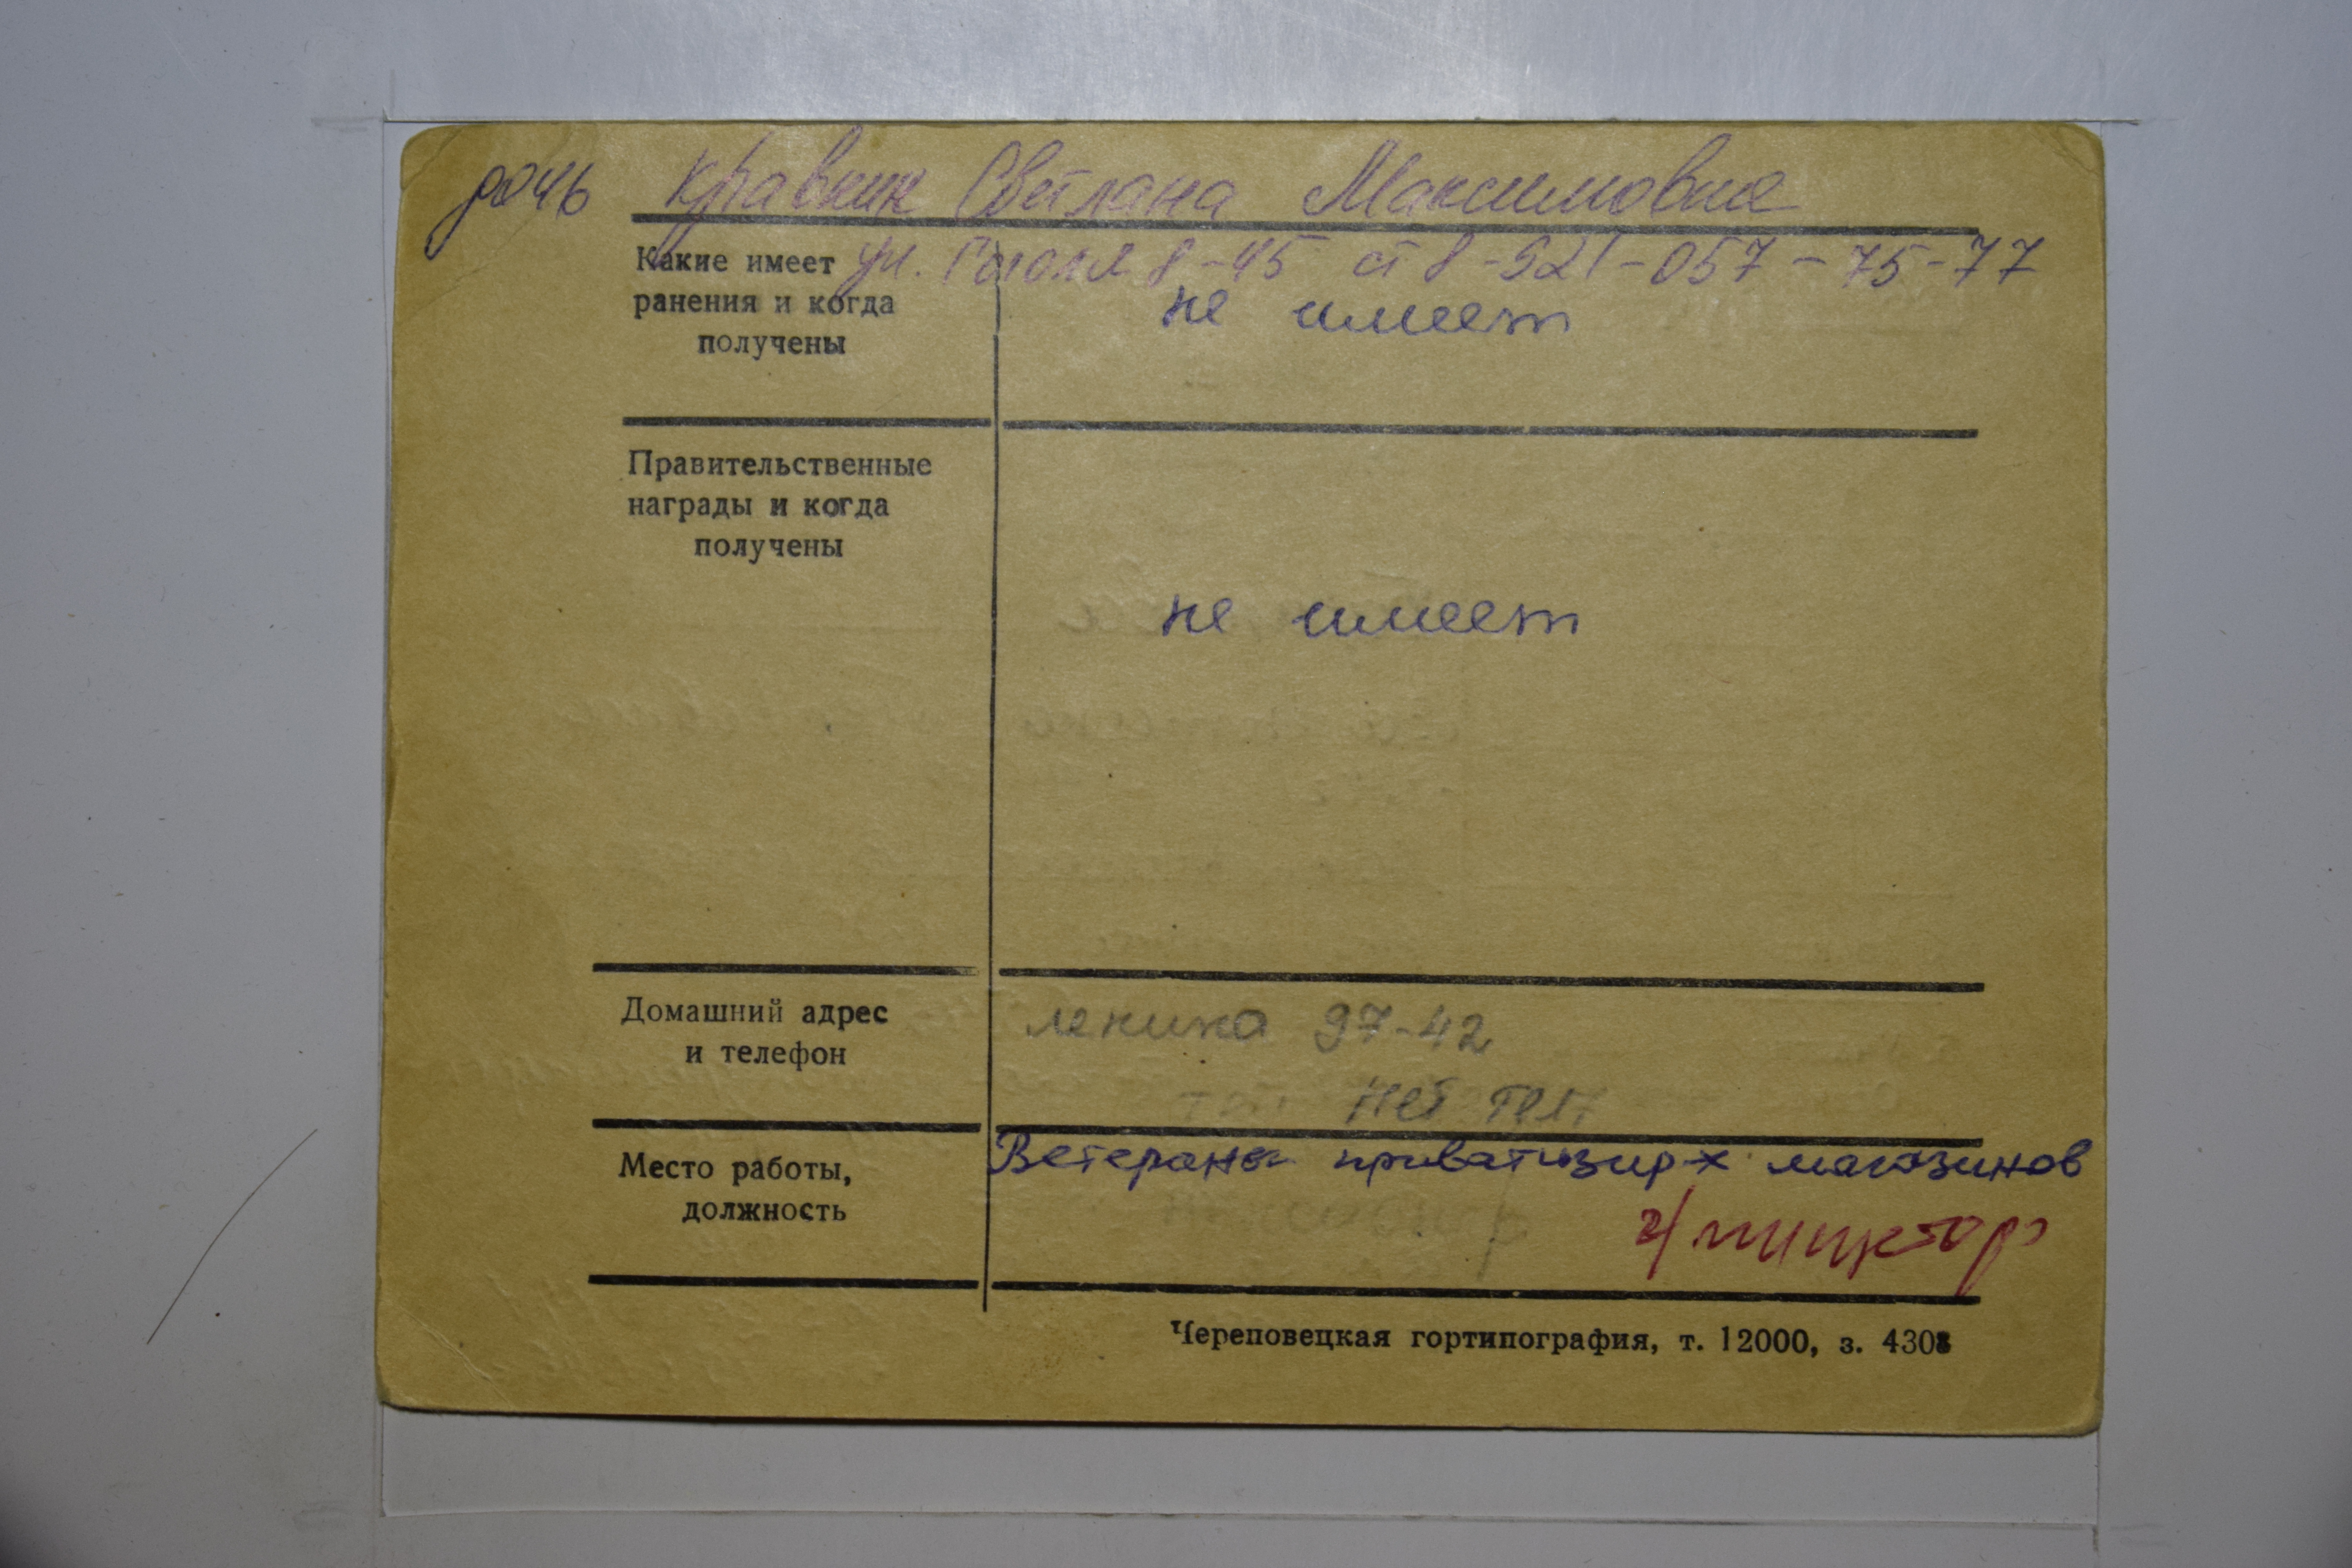 дочь Кравник Светлана Максимовна
ул. Гоголя 8-45 ст 8-921-057-75-77
Какие имеет
ранения и когда
получены
не имеет
Правительственные
награды и когда
получены
не имеет
Домашний адрес
и телефон
Ленина 97-42
нет тел
Место работы,
должность
Ветераны приватизир-х магазинов
Череповецкая гортипография, т. 12000, з. 4308